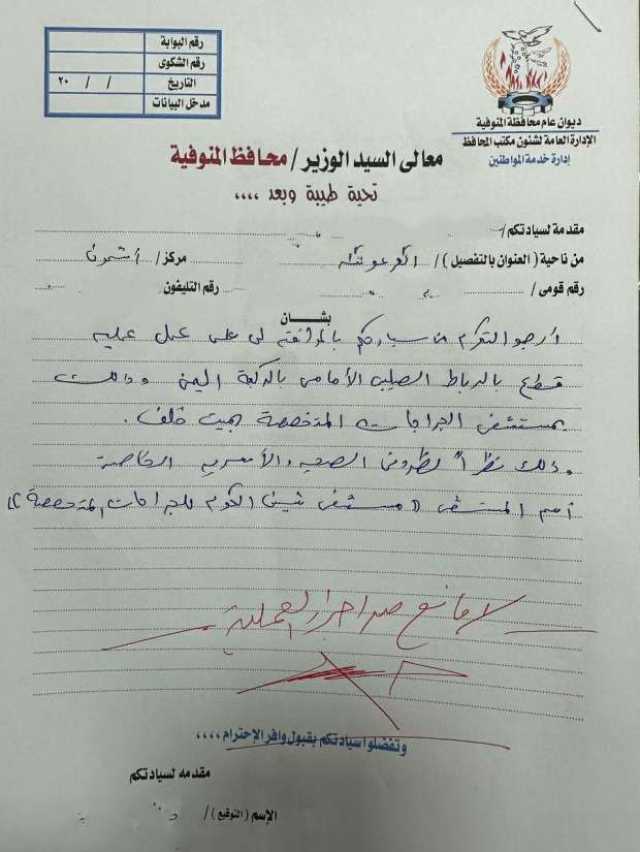 ديوان عام محافظة المنوفية
الإدارة العامة لشئون مكتب المحافظ
إدارة خدمة المواطنين
رقم البوابة
رقم الشكوى
التاريخ / / ٢٠
مدخل البيانات
معالى السيد الوزير / محافظ المنوفية
تحية طيبة وبعد ,,,,
مقدمة لسيادتكم /
من ناحية ( العنوان بالتفصيل ) / الفرعونية مركز / أشمون
رقم قومى / رقم التليفون
بشان
أرجو التكرم من سيادتكم بالموافقة لى على عمل عمليه
قطع بالرباط الصليبى الأمامى بالركبة اليمنى وذلك
بمستشفى الجراحات المتخصصة بميت خلف .
وذلك نظراً لظروفى الصحيه والأسريه الخاصة
اسم المستشفى (( مستشفى شبين الكوم للجراحات المتخصصة ))
لا مانع من اجراء العملية
وتفضلوا سيادتكم بقبول وافر الإحترام ,,,,
مقدمه لسيادتكم
الإسم ( التوقيع ) /